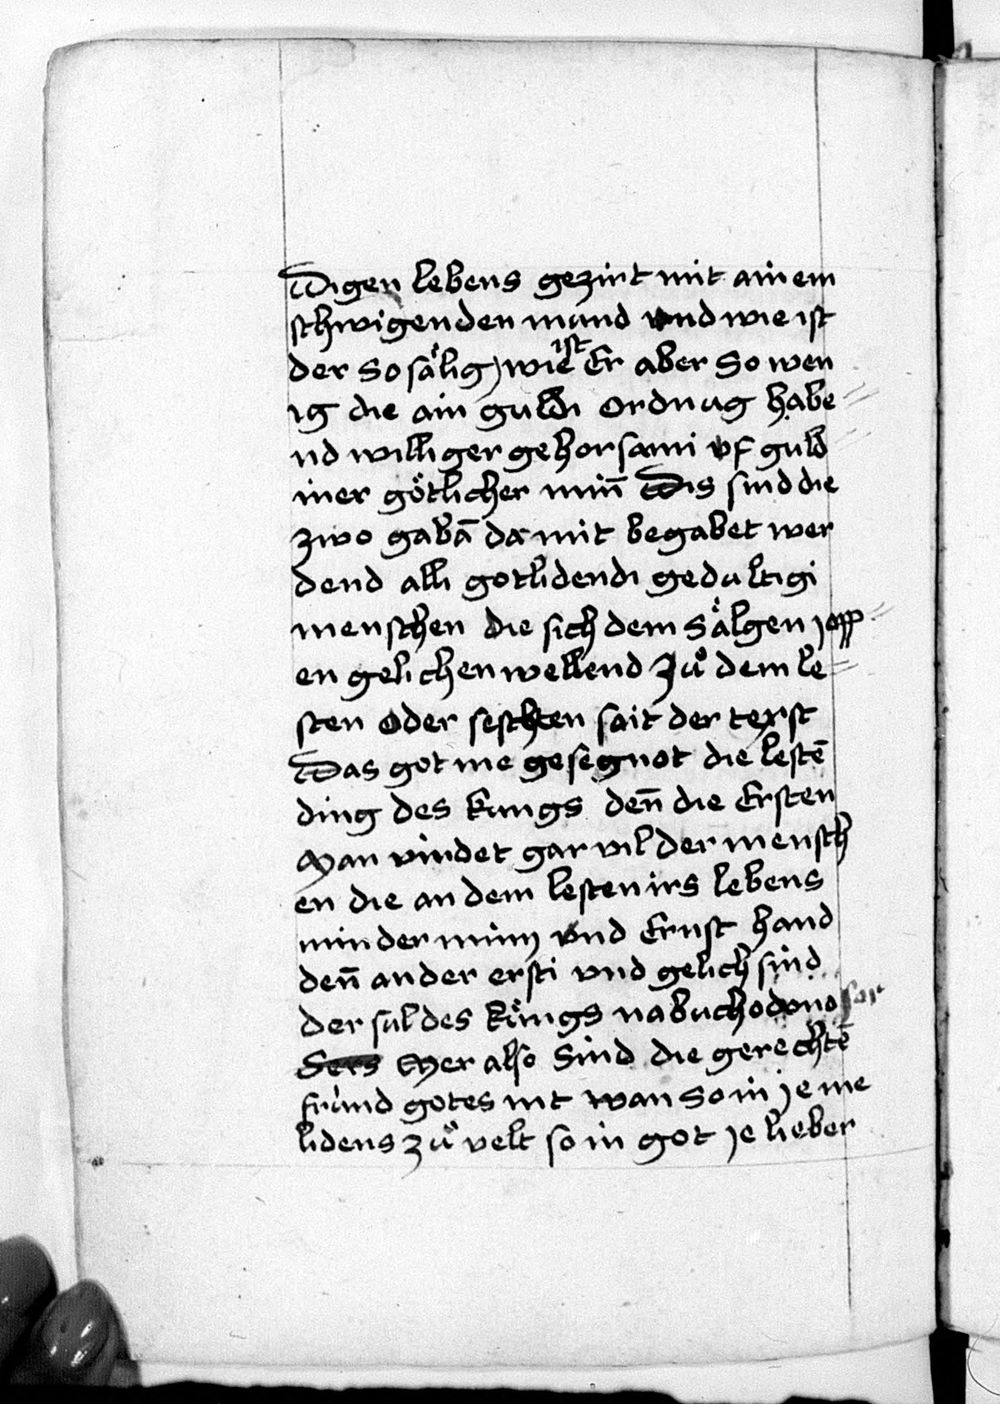 Digen lebens gezirt mit ainem
schwigenden mund vnd wie ist
der So sälig) wie ist Er aber So wen
ig die ain guldi ordnug habe
nd williger gehorsami vf guld
iner götlicher min̄ Dis sind die
zwo gabā da mit begabet wer
dend alli gotlidendi gedultigi
menschen die sich dem Sälgen jopp
en gelichen wellend Zů dem le
sten oder sechsten sait der text
Das got me gesegnot die lestē
ding des kungs den̄ die Ersten
Man vindet gar vil der mensch
en die an dem lesten irs lebens
minder minn vnd Ernst hand
den̄ an der ersti vnd gelich sind
der sul des küngs nabuchodonosor
Sers Mer also Sind die gerechtē
fründ gotes nit wan So in je me
lidens zů velt so in got je lieber